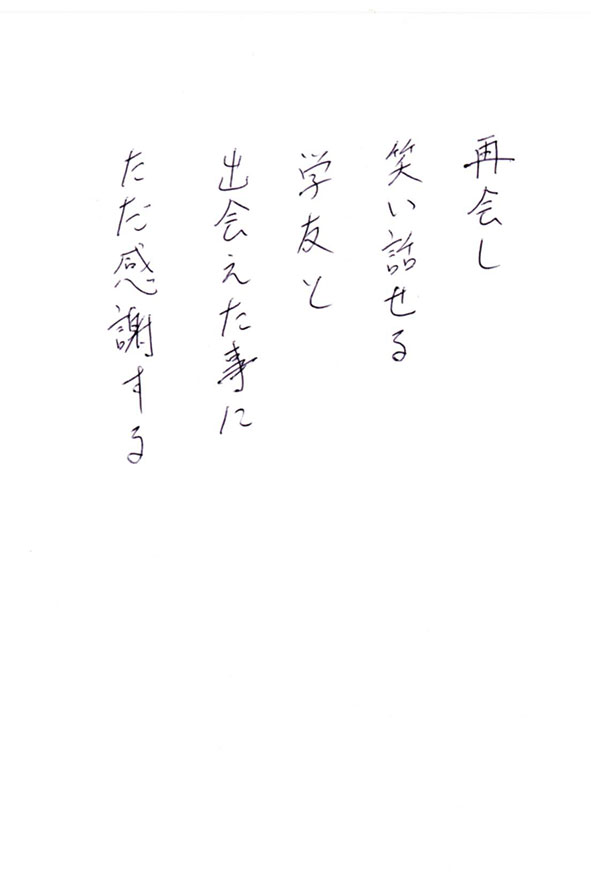 再会し
笑い話せる
学友と
出会えた事に
ただ感謝する